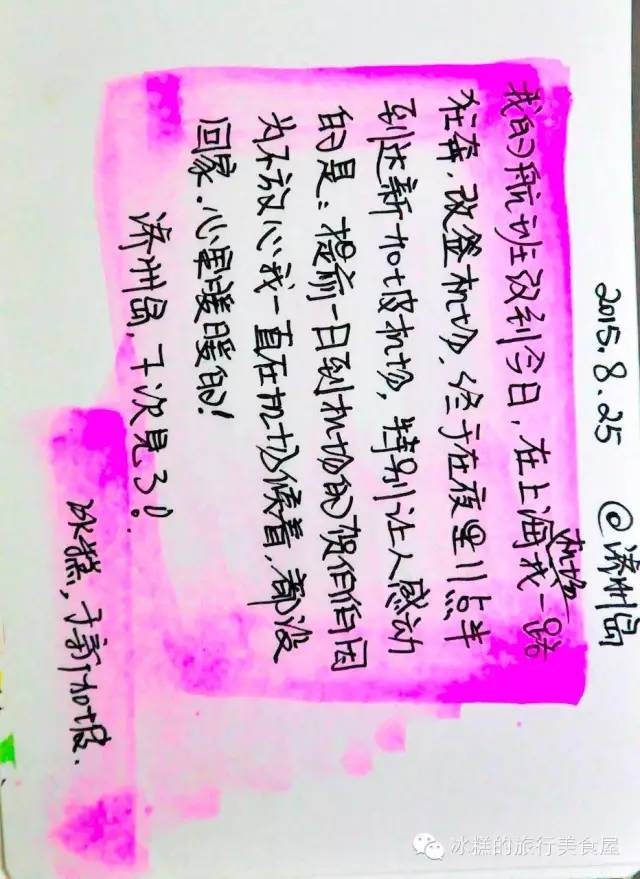 2015.8.25 @济州岛
我的航班改到今日,在上海机场我一路
狂奔,改签机场,终于在夜里11点半
到达新加坡机场,特别让人感动
的是:提前一日到机场的贺伯伯因
为不放心我一直在机场候着,都没
回家.心里暖暖的!
济州岛,下次見了!
冰糕,于新加坡.
冰糕的旅行美食屋